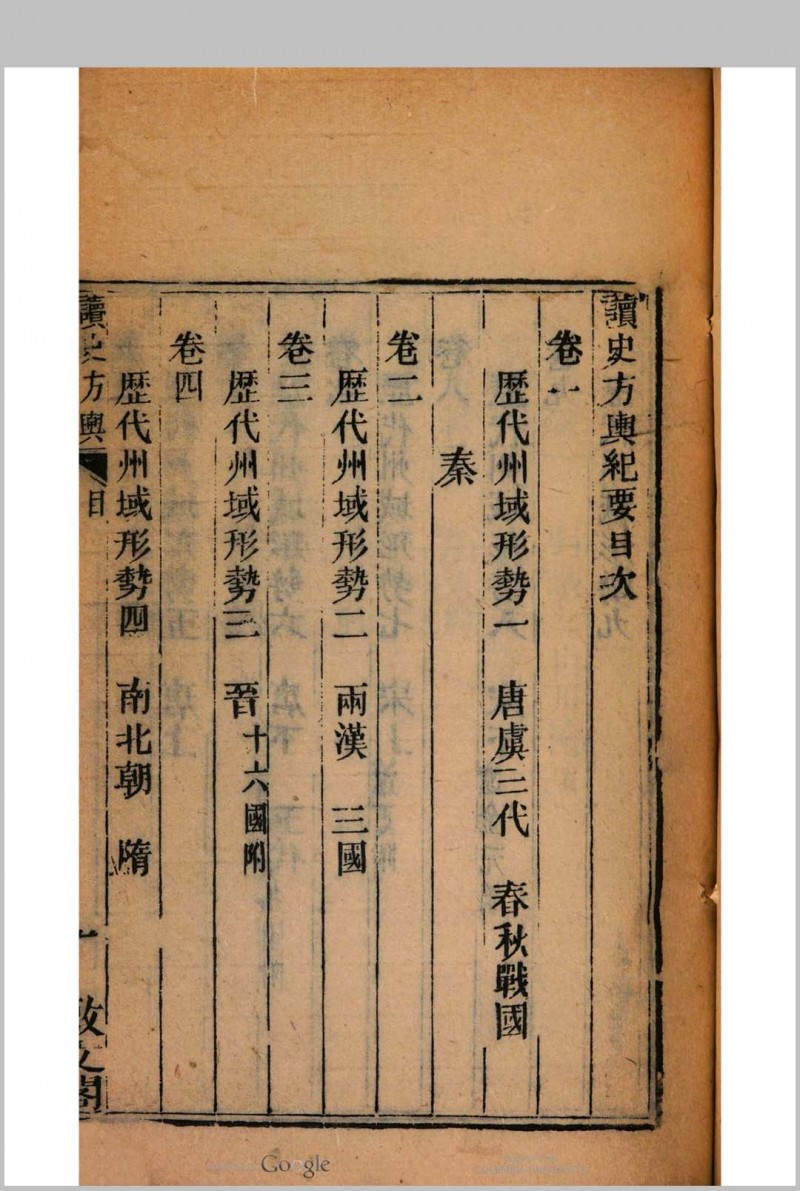 讀史方輿紀要目次
卷一
歷代州域形勢一　唐虞三代　春秋戰國
秦
卷二
歷代州域形勢二　兩漢　三國
卷三
歷代州域形勢三　晉十六國附
卷四
歷代州域形勢四　南北朝　隋
讀史方輿　目　一　敷文閣
Google